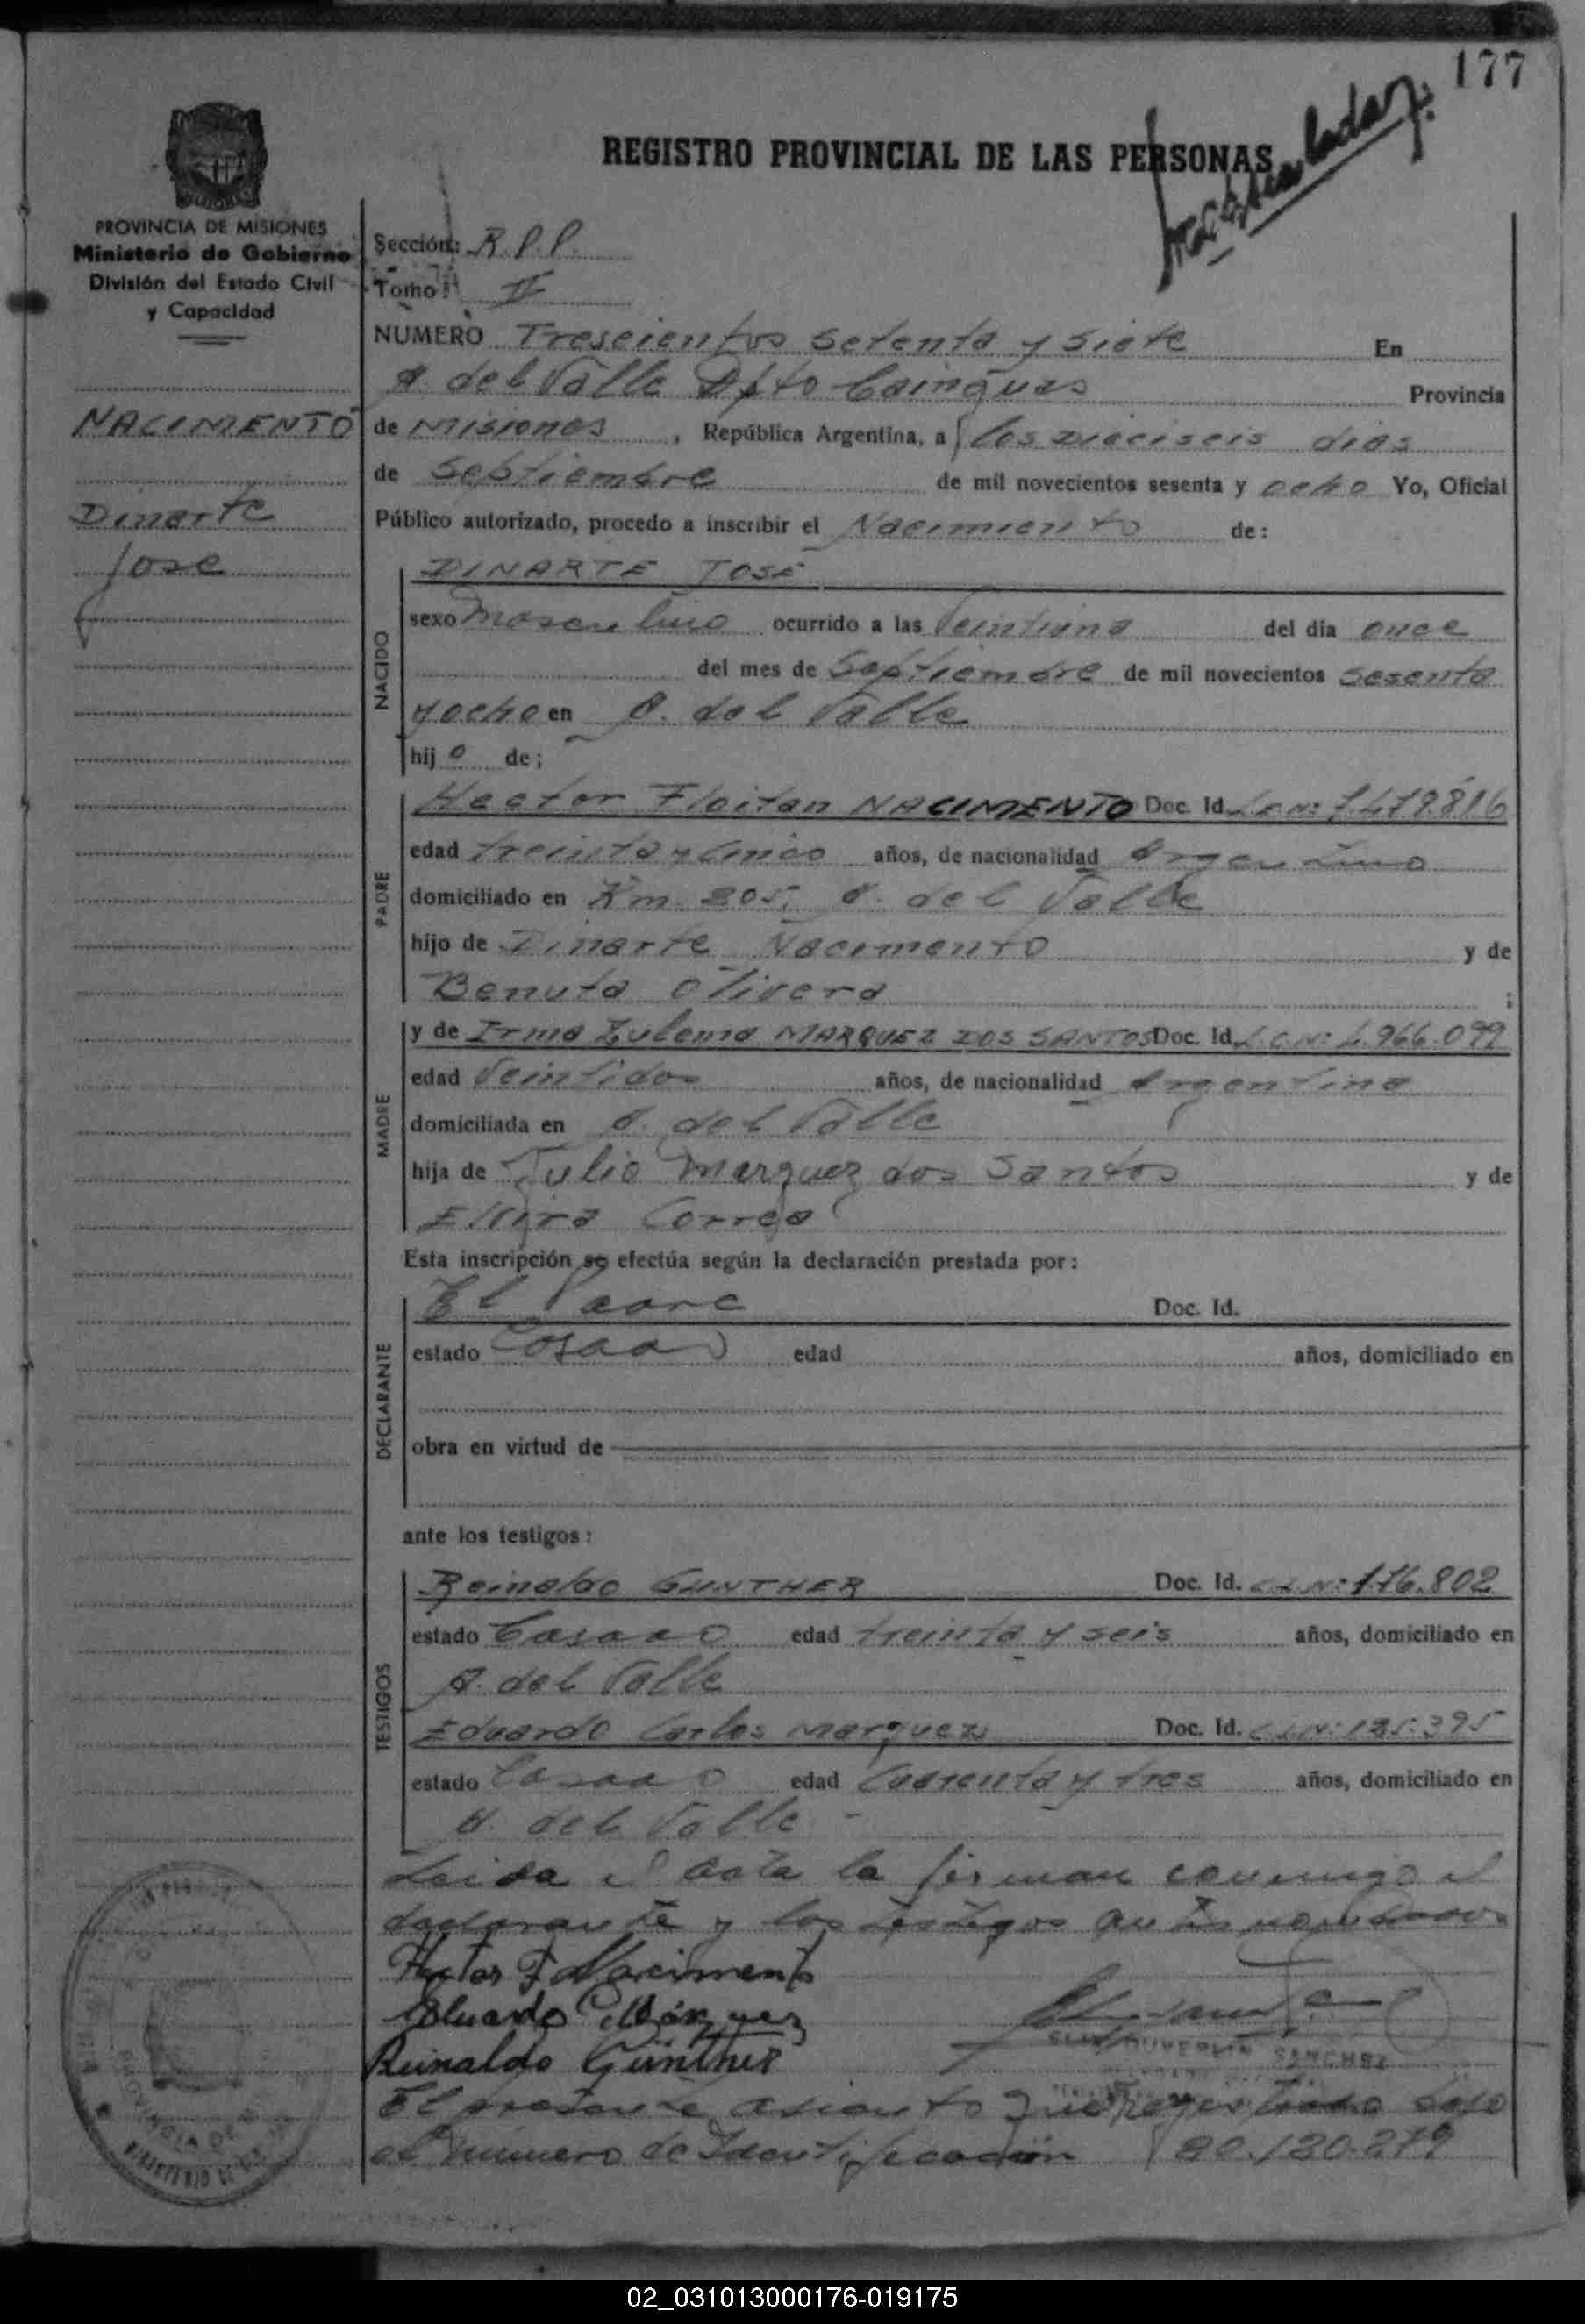 177
REGISTRO PROVINCIAL DE LAS PERSONAS
PROVINCIA DE MISIONES
Ministerio de Gobierno
División del Estado Civil
y Capacidad
NACIMENTO
Dinarte
Jose
Sección: R.P.P.
Tomo: II
NUMERO Trescientos setenta y siete En
A. del Valle Dpto Cainguas Provincia
de Misiones, República Argentina, a los Dieciseis dias
de Septiembre de mil novecientos sesenta y ocho Yo, Oficial
Público autorizado, procedo a inscribir el Nacimiento de:
NACIDO
DINARTE JOSE
sexo Masculino ocurrido a las Veintiuna del dia once
del mes de Septiembre de mil novecientos sesenta
y ocho en A. del Valle
hij o de;
PADRE
Hector Floitan NACIMENTO Doc. Id. L.E.Nº 7.479.816
edad treinta y cinco años, de nacionalidad Argentino
domiciliado en Km. 205, A. del Valle
hijo de Dinarte Nacimento y de
Benuta Olivera ;
MADRE
y de Irma Zulema MARQUEZ DOS SANTOS Doc. Id. L.C.Nº 4.966.099
edad Veintidos años, de nacionalidad Argentina
domiciliada en A. del Valle
hija de Julio Marquez dos Santos y de
Elvira Correa
Esta inscripción se efectúa según la declaración prestada por:
DECLARANTE
El Padre Doc. Id.
estado Casado edad años, domiciliado en
obra en virtud de
ante los testigos:
TESTIGOS
Reinaldo GUNTHER Doc. Id. C.I.Nº 116.802
estado Casado edad treinta y seis años, domiciliado en
A. del Valle
Eduardo Carlos Marquez Doc. Id. C.I.Nº 125.395
estado Casado edad Cuarenta y tres años, domiciliado en
A. del Valle -
Leida el acta la firman conmigo el
declarante y los testigos antes nombrados
Hector F Nacimento
Eduardo C Márquez
Reinaldo Günther
SANCHEZ
El presente asiento fue registrado bajo
el número de Identificación 20.120.279
02_031013000176-019175